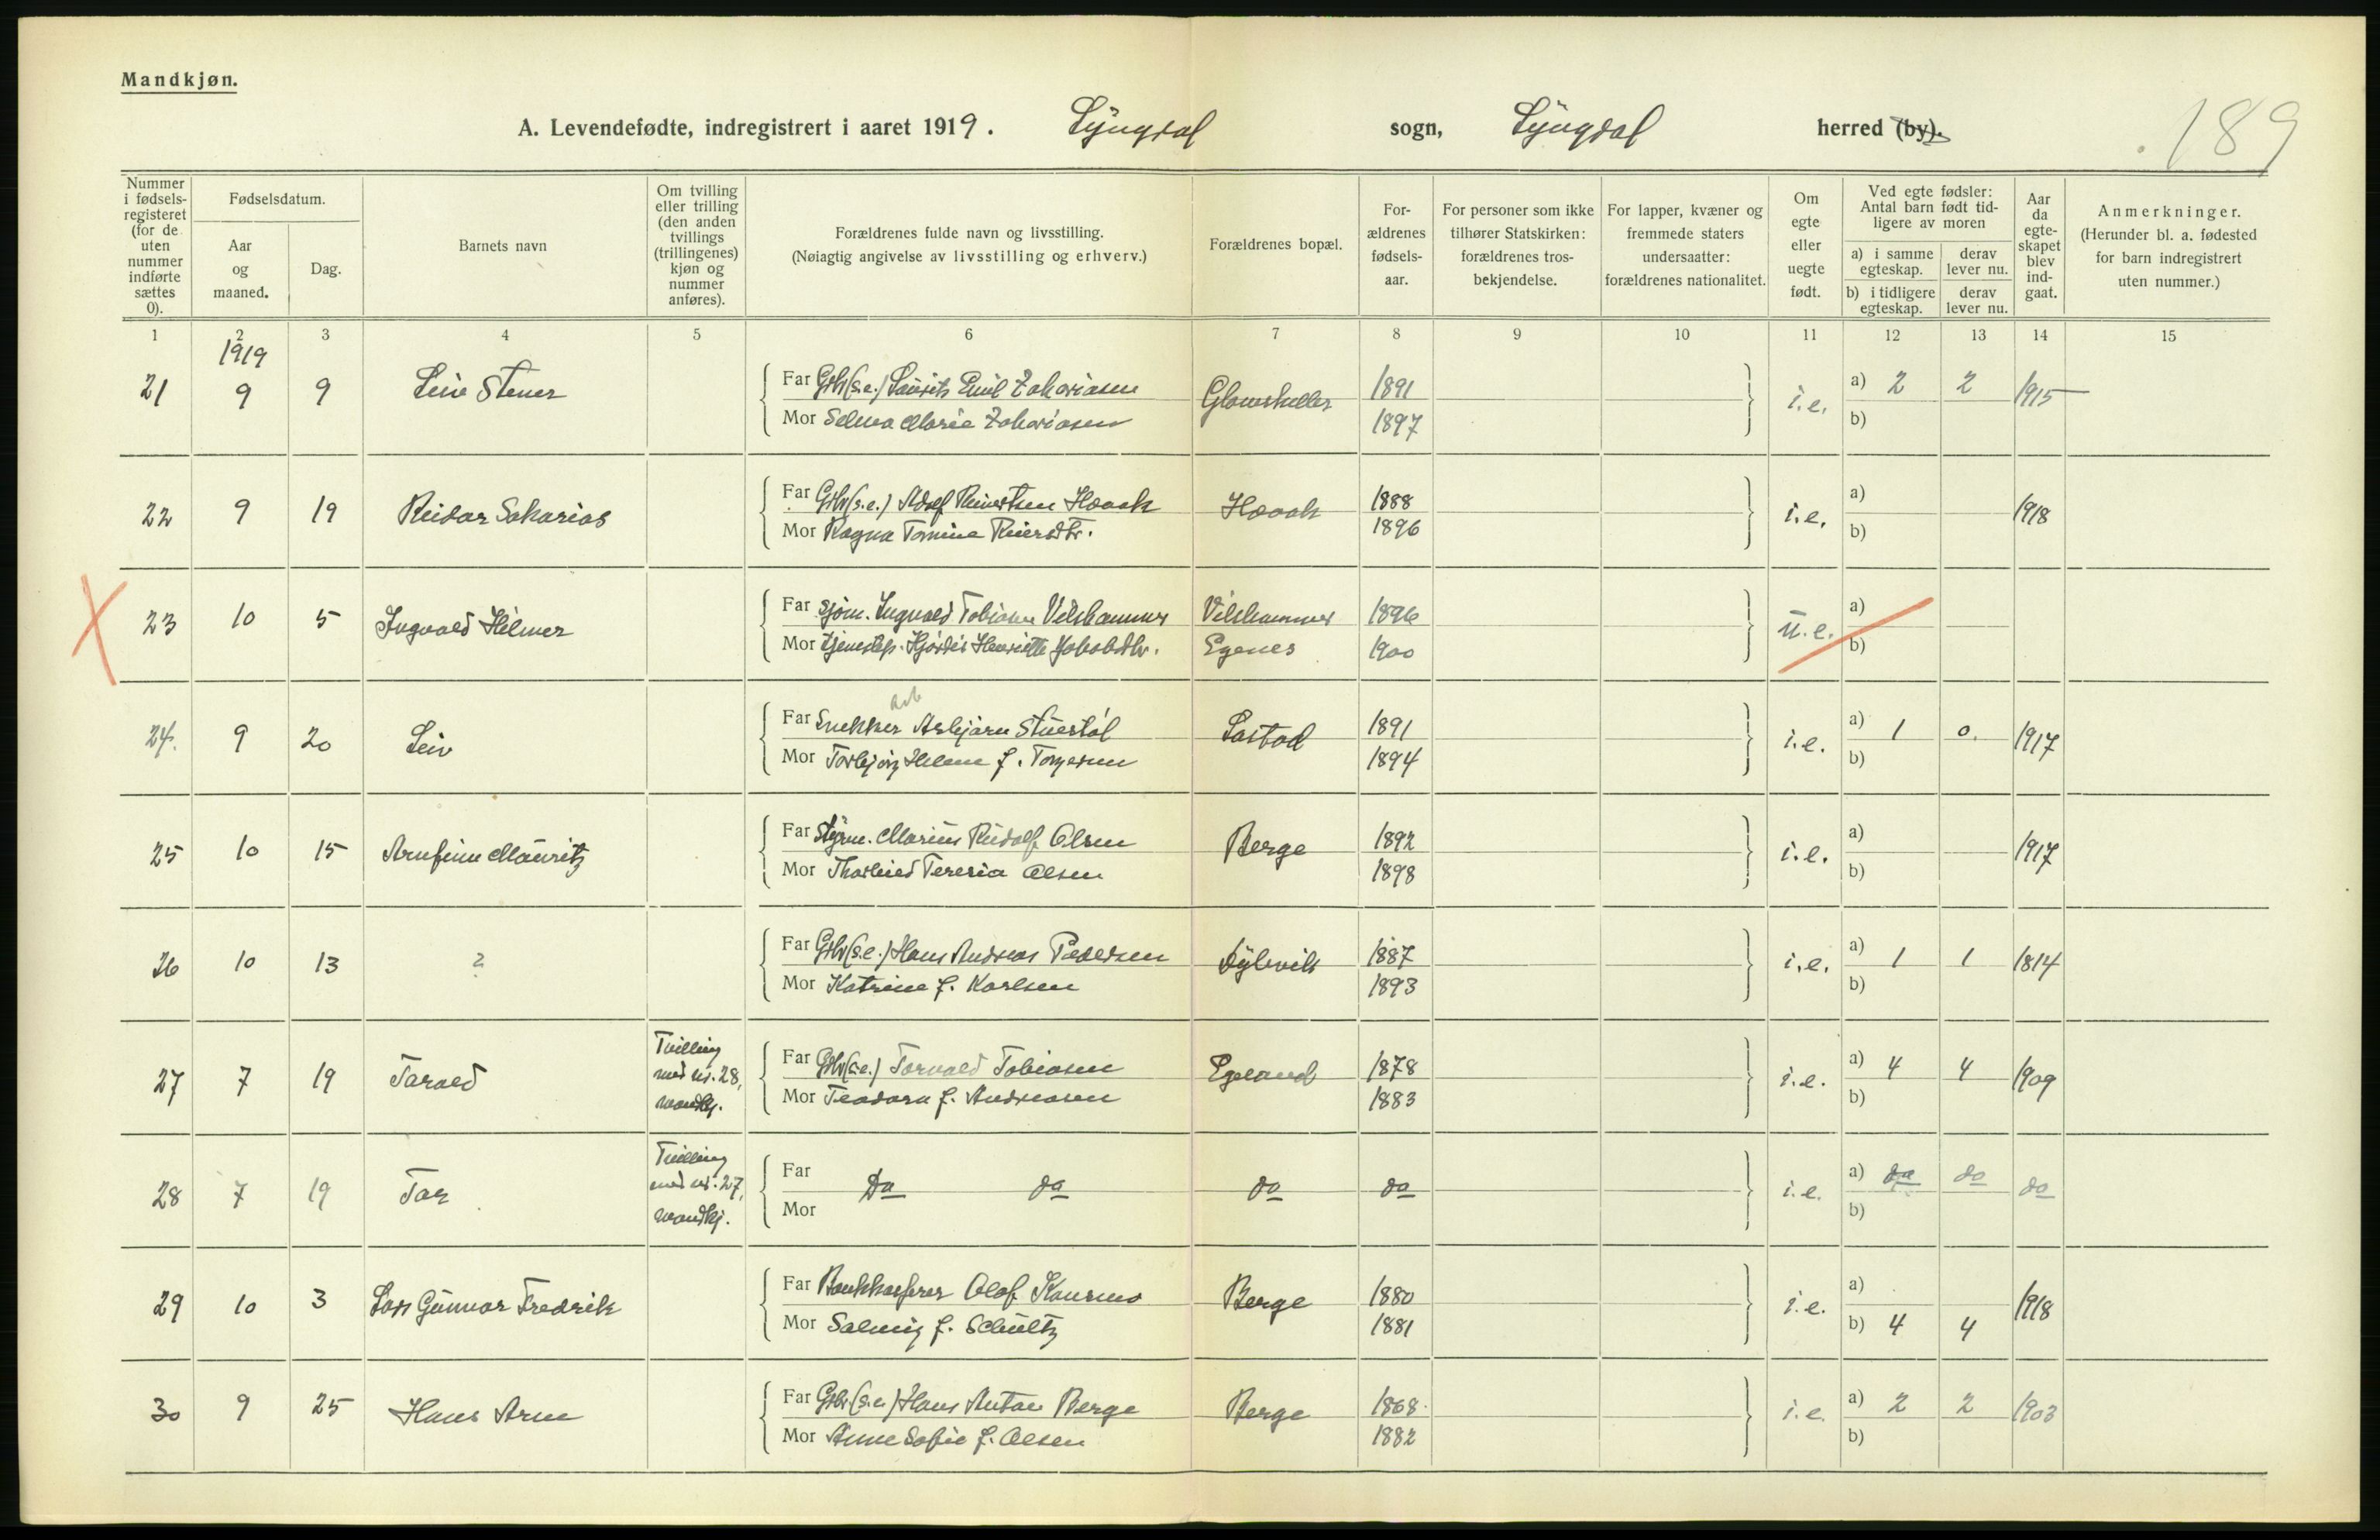 Mandkjøn.
A. Levendefødte, indregistrert i aaret 1919. Lyngdal sogn, Lyngdal herred (by).
189
Nummer i fødsels-registeret (for de uten nummer indførte sættes 0).
Fødselsdatum.
Aar og maaned.
Dag.
Barnets navn
Om tvilling eller trilling (den anden tvillings (trillingenes) kjøn og nummer anføres).
Forældrenes fulde navn og livsstilling.
(Nøiagtig angivelse av livsstilling og erhverv.)
Forældrenes bopæl.
For-ældrenes fødsels-aar.
For personer som ikke tilhører Statskirken: forældrenes tros-bekjendelse.
For lapper, kvæner og fremmede staters undersaatter: forældrenes nationalitet.
Om egte eller uegte født.
Ved egte fødsler: Antal barn født tid-ligere av moren
a) i samme egteskap.
derav lever nu.
b) i tidligere egteskap.
derav lever nu.
Aar da egte-skapet blev ind-gaat.
Anmerkninger.
(Herunder bl. a. fødested for barn indregistrert uten nummer.)
1 2 3 4 5 6 7 8 9 10 11 12 13 14 15
1919
21 9 9 Leiv Stener Far Grbr (s.e.) Lauritz Emil Zakariasen 1891 i.e. a) 2 2 1915
Mor Selma Marie Zakariasen 1897 b)
22 9 19 Reidar Sakarias Far Grbr (s.e.) Adolf Reinertsen Haaak Haaak 1888 i.e. a) 1918
Mor Ragna Tomine 1896 b)
23 10 5 Ingvald Hilmer Far Sjøm. Ingvald Tobiasen Vilshammer Vilshammer 1896 u.e. a)
Mor Hjørdis Henriette Jakobsdtr. Egenes 1900 b)
arb
24. 9 20 Leiv Far Snekker Asbjørn Stuestøl 1891 i.e. a) 1 0. 1917
Mor Torbjørg Helene f. Torgersen 1894 b)
25 10 15 Arnfinn Mauritz Far Styrm. Marius Rudolf Olsen Berge 1892 i.e. a) 1917
Mor Teresia Olsen 1898 b)
26 10 13 ? Far Grbr (s.e.) Hans Andreas Pedersen 1887 i.e. a) 1 1 1814
Mor Katrine f. Karlsen 1893 b)
27 7 19 Tarald Tvilling med nr. 28, mandkj. Far Grbr (s.e.) Torvald Tobiasen Egeland 1878 i.e. a) 4 4 1909
Mor Teodora f. Andreasen 1883 b)
28 7 19 Tor Tvilling med nr. 27, mandkj. Far Do do do do i.e. a) do do do
Mor b)
29 10 3 Lars Gunnar Fredrik Far Bankkasserer Olaf Berge 1880 i.e. a) 1918
Mor Solveig f. Schultz 1881 b) 4 4
30 9 25 Hans Arne Far Grbr (s.e.) Hans Anton Berge Berge 1868 i.e. a) 2 2 1903
Mor Anne Sofie f. Olsen 1882 b)